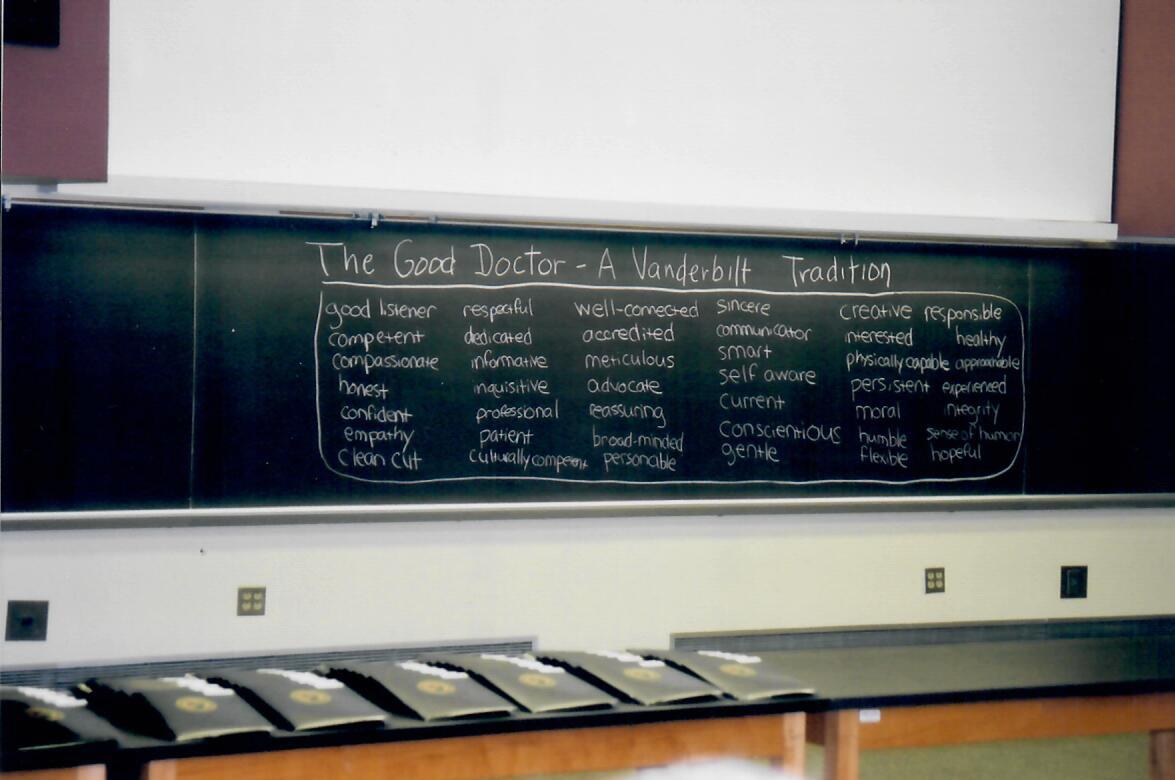 The Good Doctor - A Vanderbilt Tradition
good listener respectful well-connected sincere creative responsible
competent dedicated accredited communicator interested healthy
compassionate informative meticulous smart physically capable approachable
honest inquisitive advocate self aware persistent experienced
confident professional reassuring current moral integrity
empathy patient broad-minded conscientious humble sense of humor
clean cut culturally competent personable gentle flexible hopeful